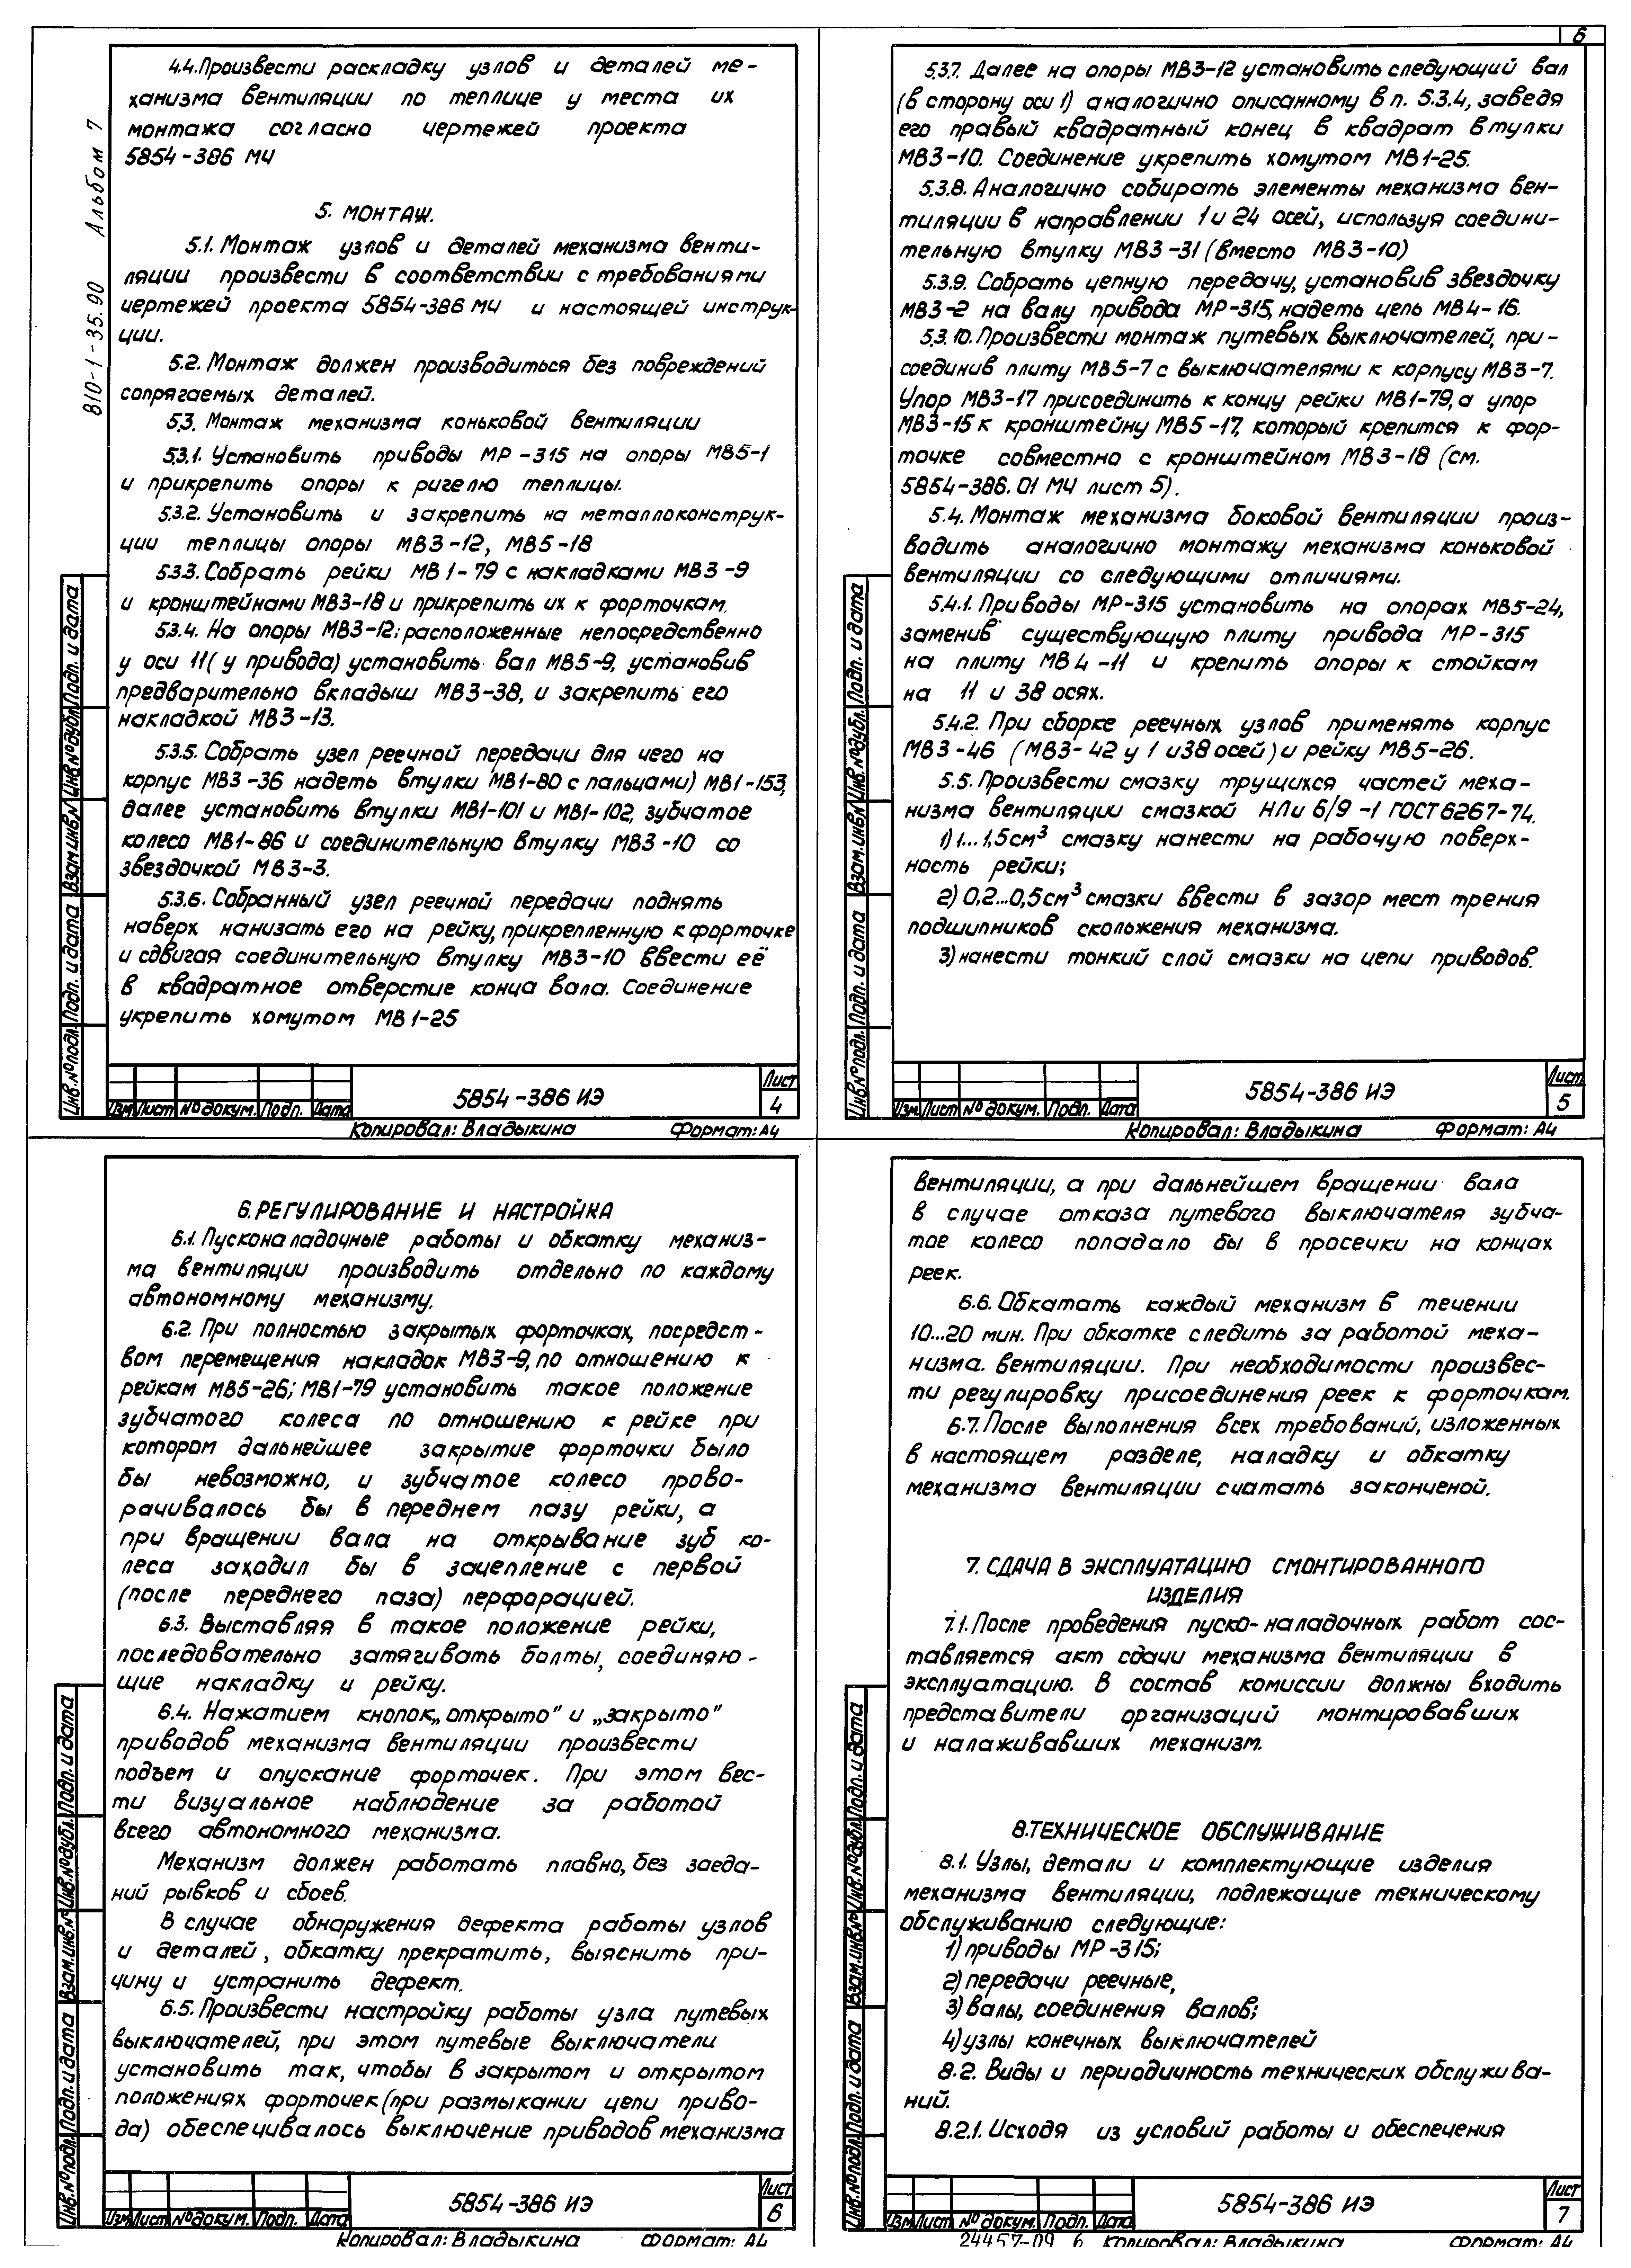 6
810-1-35.90 Альбом 7
4.4. Произвести раскладку узлов и деталей ме-
ханизма вентиляции по теплице у места их
монтажа согласно чертежей проекта
5854-386 МЧ
5. МОНТАЖ.
5.1. Монтаж узлов и деталей механизма венти-
ляции произвести в соответствии с требованиями
чертежей проекта 5854-386 МЧ и настоящей инструк-
ции.
5.2. Монтаж должен производиться без повреждений
сопрягаемых деталей.
5.3. Монтаж механизма коньковой вентиляции
5.3.1. Установить приводы МР-315 на опоры МВ5-1
и прикрепить опоры к ригелю теплицы.
5.3.2. Установить и закрепить на металлоконструк-
ции теплицы опоры МВ3-12, МВ5-18
5.3.3. Собрать рейки МВ1-79 с накладками МВ3-9
и кронштейнами МВ3-18 и прикрепить их к форточкам.
5.3.4. На опоры МВ3-12; расположенные непосредственно
у оси 11 (у привода) установить вал МВ5-9, установив
предварительно вкладыш МВ3-38, и закрепить его
накладкой МВ3-13.
5.3.5. Собрать узел реечной передачи для чего на
корпус МВ3-36 надеть втулки МВ1-80 с пальцами) МВ1-153,
далее установить втулки МВ1-101 и МВ1-102, зубчатое
колесо МВ1-86 и соединительную втулку МВ3-10 со
звездочкой МВ3-3.
5.3.6. Собранный узел реечной передачи поднять
наверх нанизать его на рейку, прикрепленную к форточке
и сдвигая соединительную втулку МВ3-10 ввести её
в квадратное отверстие конца вала. Соединение
укрепить хомутом МВ1-25
Инв.№подл. Подп. и дата Взам.инв.№ Инв.№дубл. Подп. и дата
Изм Лист №докум. Подп. Дата
5854-386 ИЭ
Лист
4
Копировал: Владыкина Формат: А4
5.3.7. Далее на опоры МВ3-12 установить следующий вал
(в сторону оси 1) аналогично описанному в п. 5.3.4, заведя
его правый квадратный конец в квадрат втулки
МВ3-10. Соединение укрепить хомутом МВ1-25.
5.3.8. Аналогично собирать элементы механизма вен-
тиляции в направлении 1 и 24 осей, используя соедини-
тельную втулку МВ3-31 (вместо МВ3-10)
5.3.9. Собрать цепную передачу, установив звездочку
МВ3-2 на валу привода МР-315, надеть цепь МВ4-16.
5.3.10. Произвести монтаж путевых выключателей, при-
соединив плиту МВ5-7 с выключателями к корпусу МВ3-7.
Упор МВ3-17 присоединить к концу рейки МВ1-79, а упор
МВ3-15 к кронштейну МВ5-17, который крепится к фор-
точке совместно с кронштейном МВ3-18 (см.
5854-386.01 МЧ лист 5).
5.4. Монтаж механизма боковой вентиляции произ-
водить аналогично монтажу механизма коньковой
вентиляции со следующими отличиями.
5.4.1. Приводы МР-315 установить на опорах МВ5-24,
заменив существующую плиту привода МР-315
на плиту МВ4-11 и крепить опоры к стойкам
на 11 и 38 осях.
5.4.2. При сборке реечных узлов применять корпус
МВ3-46 (МВ3-42 у 1 и 38 осей) и рейку МВ5-26.
5.5. Произвести смазку трущихся частей меха-
низма вентиляции смазкой НЛи 6/9-1 ГОСТ 6267-74.
1) 1...1,5 см³ смазку нанести на рабочую поверх-
ность рейки;
2) 0,2...0,5 см³ смазки ввести в зазор мест трения
подшипников скольжения механизма.
3) нанести тонкий слой смазки на цепи приводов.
Инв.№подл. Подп. и дата Взам.инв.№ Инв.№дубл. Подп. и дата
Изм Лист №докум. Подп. Дата
5854-386 ИЭ
Лист
5
Копировал: Владыкина Формат: А4
6. РЕГУЛИРОВАНИЕ И НАСТРОЙКА
6.1. Пусконаладочные работы и обкатку механиз-
ма вентиляции производить отдельно по каждому
автономному механизму.
6.2. При полностью закрытых форточках, посредст-
вом перемещения накладок МВ3-9, по отношению к
рейкам МВ5-26; МВ1-79 установить такое положение
зубчатого колеса по отношению к рейке при
котором дальнейшее закрытие форточки было
бы невозможно, и зубчатое колесо прово-
рачивалось бы в переднем пазу рейки, а
при вращении вала на открывание зуб ко-
леса заходил бы в зацепление с первой
(после переднего паза) перфорацией.
6.3. Выставляя в такое положение рейки,
последовательно затягивать болты, соединяю-
щие накладку и рейку.
6.4. Нажатием кнопок „открыто" и „закрыто"
приводов механизма вентиляции произвести
подъем и опускание форточек. При этом вес-
ти визуальное наблюдение за работой
всего автономного механизма.
Механизм должен работать плавно, без заеда-
ний рывков и сбоев.
В случае обнаружения дефекта работы узлов
и деталей, обкатку прекратить, выяснить при-
чину и устранить дефект.
6.5. Произвести настройку работы узла путевых
выключателей, при этом путевые выключатели
установить так, чтобы в закрытом и открытом
положениях форточек (при размыкании цепи приво-
да) обеспечивалось выключение приводов механизма
Инв.№подл. Подп. и дата Взам.инв.№ Инв.№дубл. Подп. и дата
Изм Лист №докум. Подп. Дата
5854-386 ИЭ
Лист
6
Копировал: Владыкина Формат: А4
вентиляции, а при дальнейшем вращении вала
в случае отказа путевого выключателя зубча-
тое колесо попадало бы в просечки на концах
реек.
6.6. Обкатать каждый механизм в течении
10...20 мин. При обкатке следить за работой меха-
низма. вентиляции. При необходимости произвес-
ти регулировку присоединения реек к форточкам.
6.7. После выполнения всех требований, изложенных
в настоящем разделе, наладку и обкатку
механизма вентиляции считать законченой.
7. СДАЧА В ЭКСПЛУАТАЦИЮ СМОНТИРОВАННОГО
ИЗДЕЛИЯ
7.1. После проведения пуско-наладочных работ сос-
тавляется акт сдачи механизма вентиляции в
эксплуатацию. В состав комиссии должны входить
представители организаций монтировавших
и налаживавших механизм.
8. ТЕХНИЧЕСКОЕ ОБСЛУЖИВАНИЕ
8.1. Узлы, детали и комплектующие изделия
механизма вентиляции, подлежащие техническому
обслуживанию следующие:
1) приводы МР-315;
2) передачи реечные,
3) валы, соединения валов;
4) узлы конечных выключателей
8.2. Виды и периодичность технических обслужива-
ний.
8.2.1. Исходя из условий работы и обеспечения
Инв.№подл. Подп. и дата Взам.инв.№ Инв.№дубл. Подп. и дата
Изм Лист №докум. Подп. Дата
5854-386 ИЭ
Лист
7
24457-09 6 Копировал: Владыкина Формат: А4